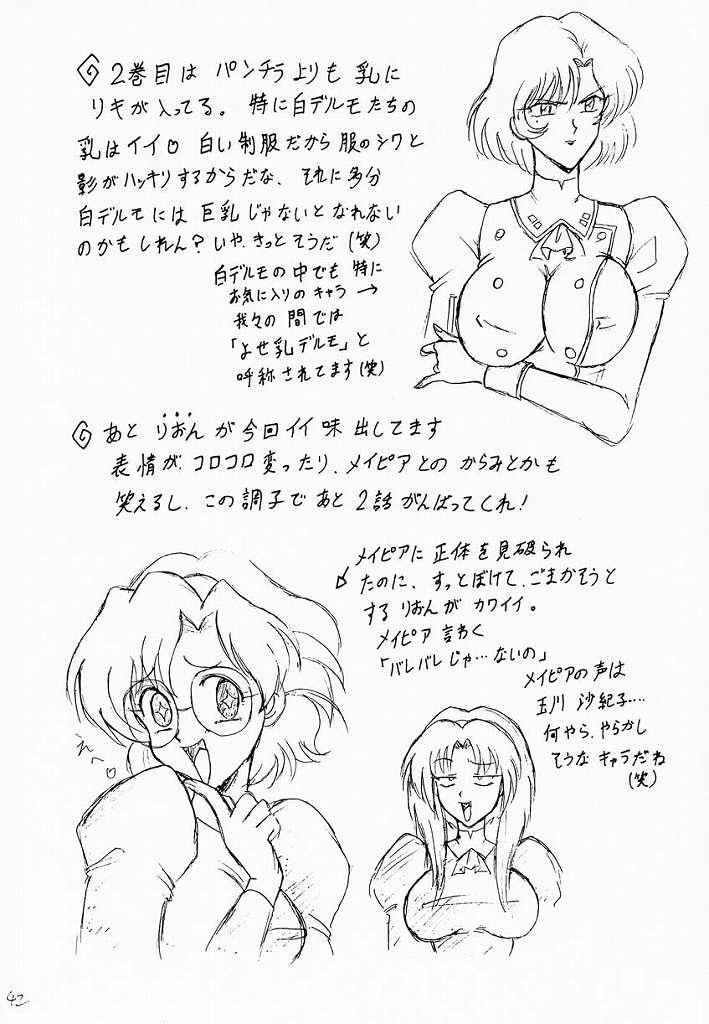 2巻目は パンチラよりも 乳に
リキが入ってる。特に白デルモたちの
乳はイイ。白い制服だから服のシワと
影がハッキリするからだな、それに多分
白デルモには巨乳じゃないとなれない
のかもしれん?いや、きっとそうだ(笑)
白デルモの中でも特に
お気に入りのキャラ→
我々の間では
「よせ乳デルモ」と
呼称されてます(笑)
あと りおんが今回イイ味出してます
表情がコロコロ変ったり、メイピアとのからみとかも
笑えるし、この調子であと2話がんばってくれ!
メイピアに正体を見破られ
たのに、すっとぼけて、ごまかそうと
する りおんが カワイイ。
メイピア 言わく
「バレバレじゃ…ないの」
メイピアの声は
玉川 沙紀子‥‥
何やら、やらかし
そうな キャラだね
(笑)
えへ。
42